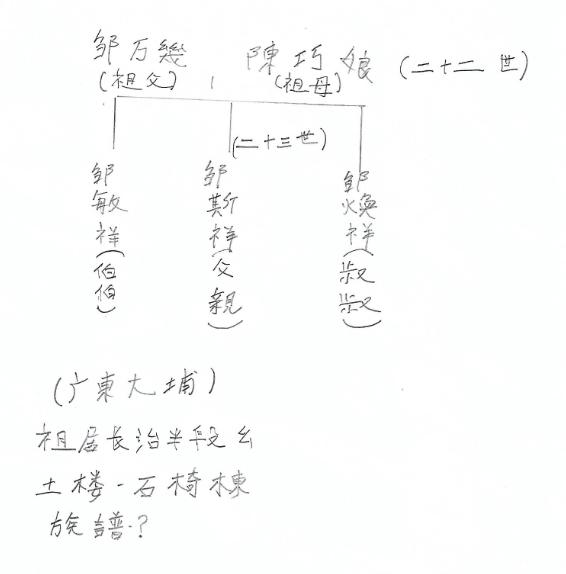 邹万幾 陳巧娘 (二十二世)
(祖父) (祖母)
(二十三世)
邹敏祥(伯伯)
邹斯祥(父親)
邹煥祥(叔叔)
(广東大埔)
祖居長治半段
土楼-石椅棟
族譜?